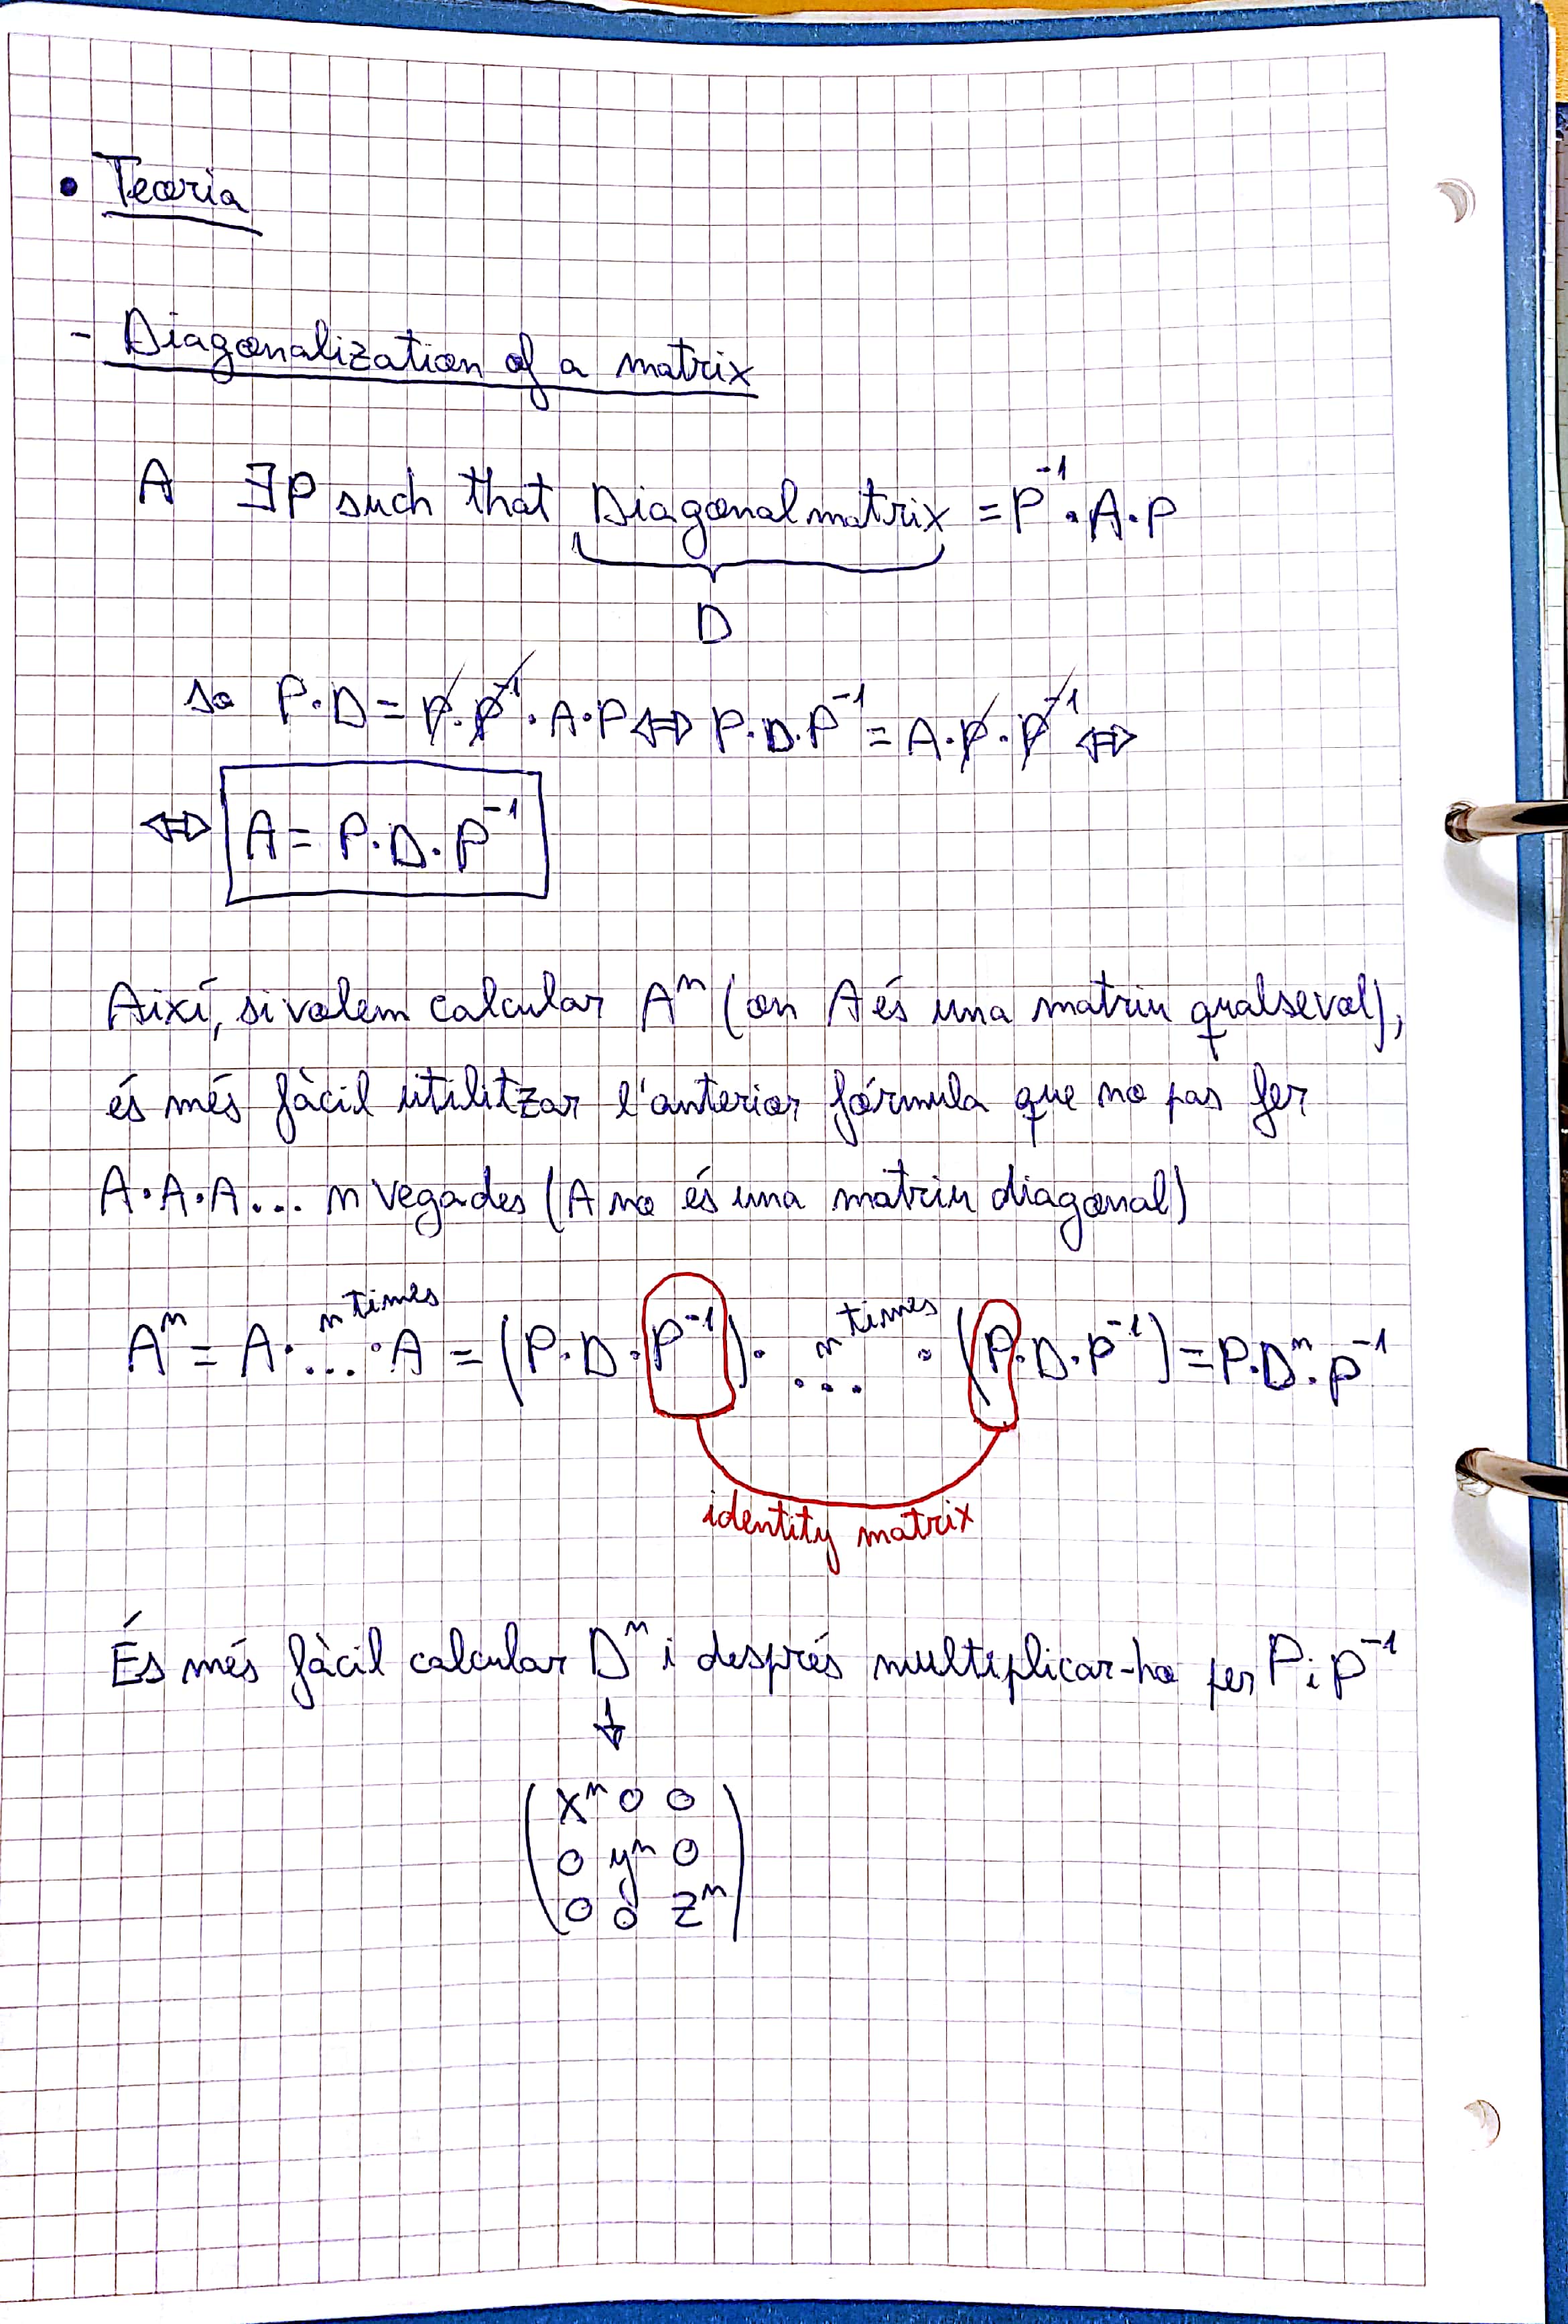 • Teoria
- Diagonalization of a matrix
A ∃P such that Diagonal matrix = P⁻¹ · A · P
D
so P·D = P·P⁻¹·A·P ⇔ P·D·P⁻¹ = A·P·P⁻¹ ⇔
⇔ A = P·D·P⁻¹
Així, si volem calcular Aⁿ (on A és una matriu qualsevol),
és més fàcil utilitzar l'anterior fórmula que no pas fer
A·A·A... n vegades (A no és una matriu diagonal)
Aⁿ = A· n times ... ·A = (P·D·P⁻¹)· n times ... ·(P·D·P⁻¹) = P·Dⁿ·P⁻¹
identity matrix
És més fàcil calcular Dⁿ i després multiplicar-ho per P i P⁻¹
↓
xⁿ 0 0
0 yⁿ 0
0 0 zⁿ